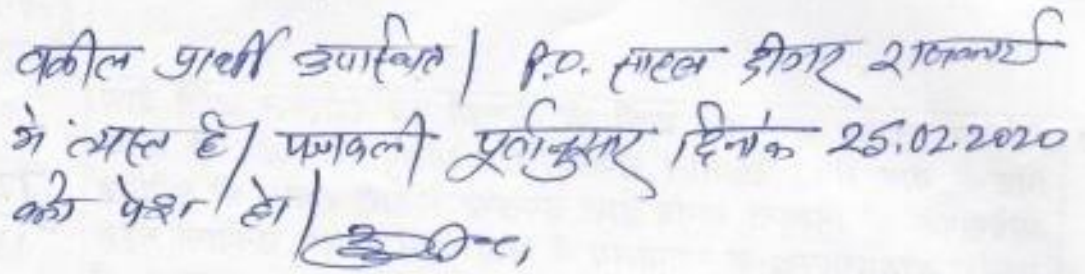 वकील प्रार्थी उपस्थित। P.O. साहब दीगर राजकार्य
में व्यस्त है। पत्रावली पूर्वानुसार दिनांक 25.02.2020
को पेश हो।